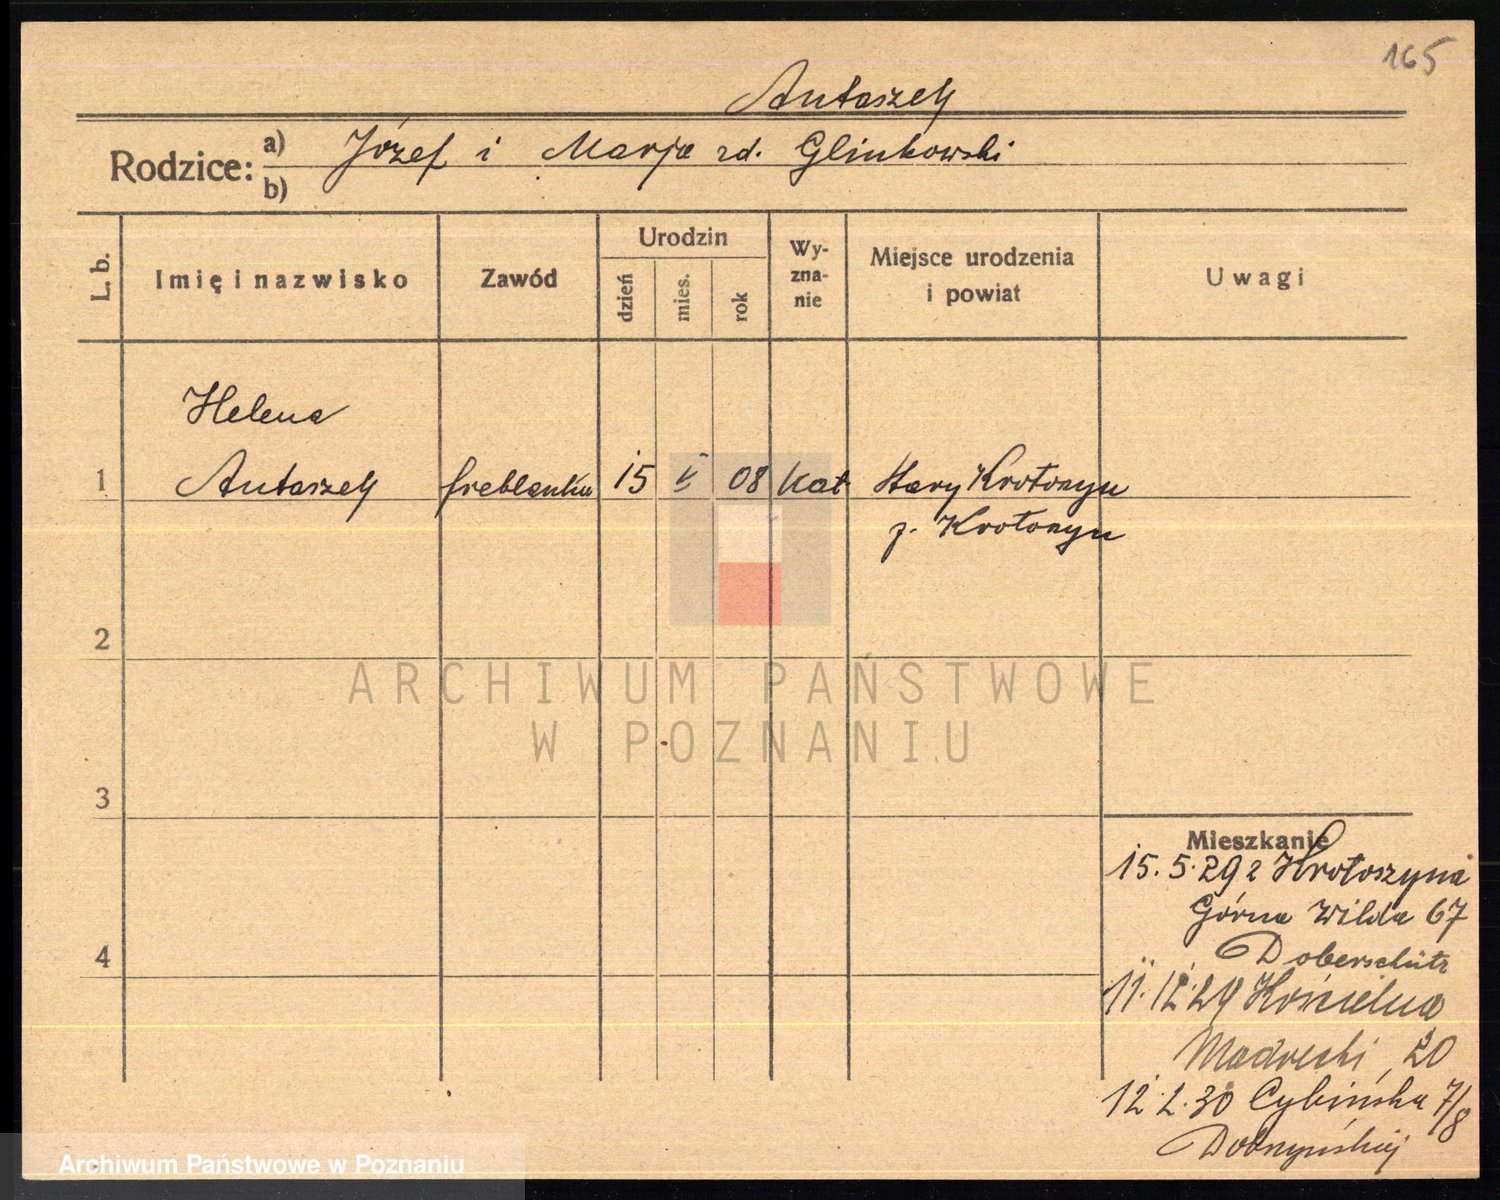 165
Antaszek
Rodzice: a) Józef i Marja zd. Glinkowski
b)
L. b.
Imię i nazwisko
Zawód
Urodzin
dzień
mies.
rok
Wy-
zna-
nie
Miejsce urodzenia
i powiat
Uwagi
Helena
1 Antaszek freblanka 15 V 08 kat Stary Krotoszyn
p. Krotoszyn
2
3
4
Mieszkanie
15.5.29 z Krotoszyna
Górna Wilda 67
Doberschütz
11.12.29 Kościelna
Madrecki 20
12.2.30 Cybińska 7/8
ARCHIWUM PAŃSTWOWE
W POZNANIU
Archiwum Państwowe w Poznaniu